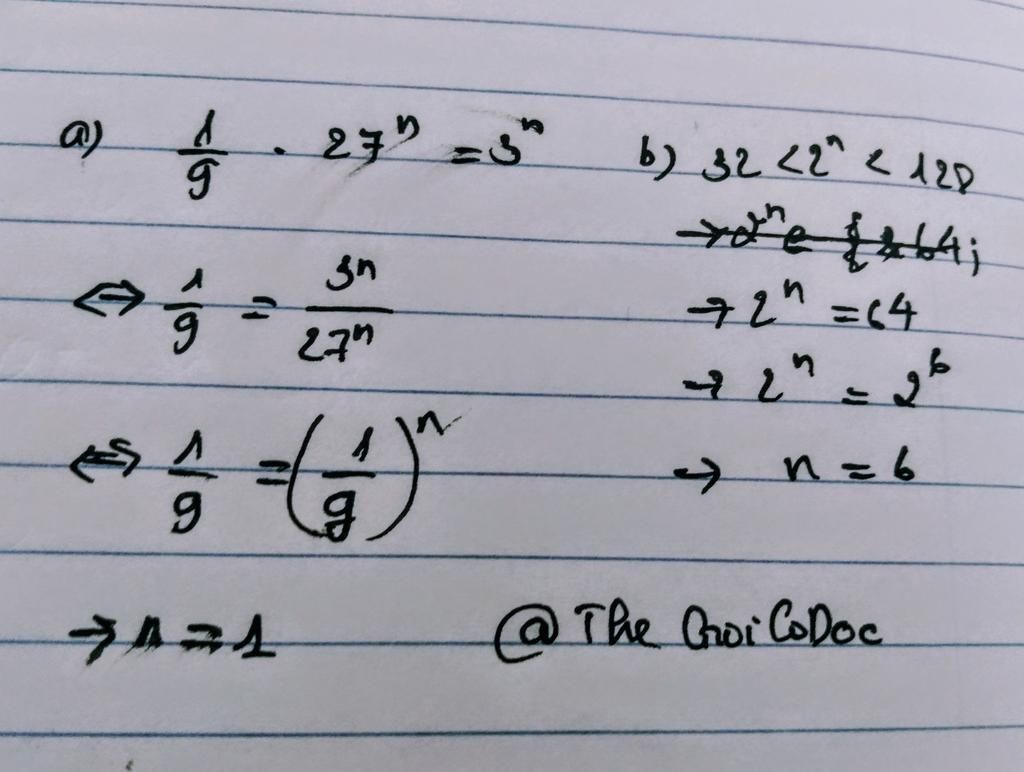 a) 1/9 . 27ⁿ = 3ⁿ
⇔ 1/9 = 3ⁿ/27ⁿ
⇔ 1/9 = (1/9)ⁿ
→ n = 1
b) 32 < 2ⁿ < 128
→ 2ⁿ ∈ { 64;
→ 2ⁿ = 64
→ 2ⁿ = 2⁶
→ n = 6
@ The GioiCoDoc